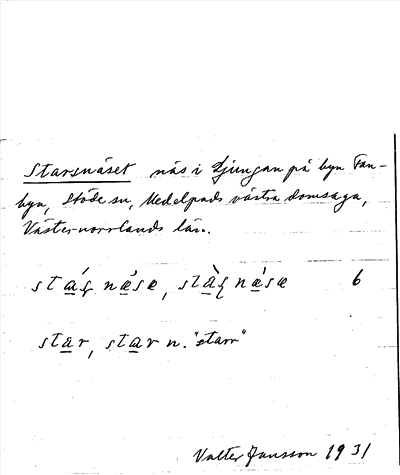 Starsnäset näs i Ljungan på byn Fan-
byn, Stöde sn, Medelpads västra domsaga,
Västernorrlands län.
star, star n. "starr"
6
Valter Jansson 1931